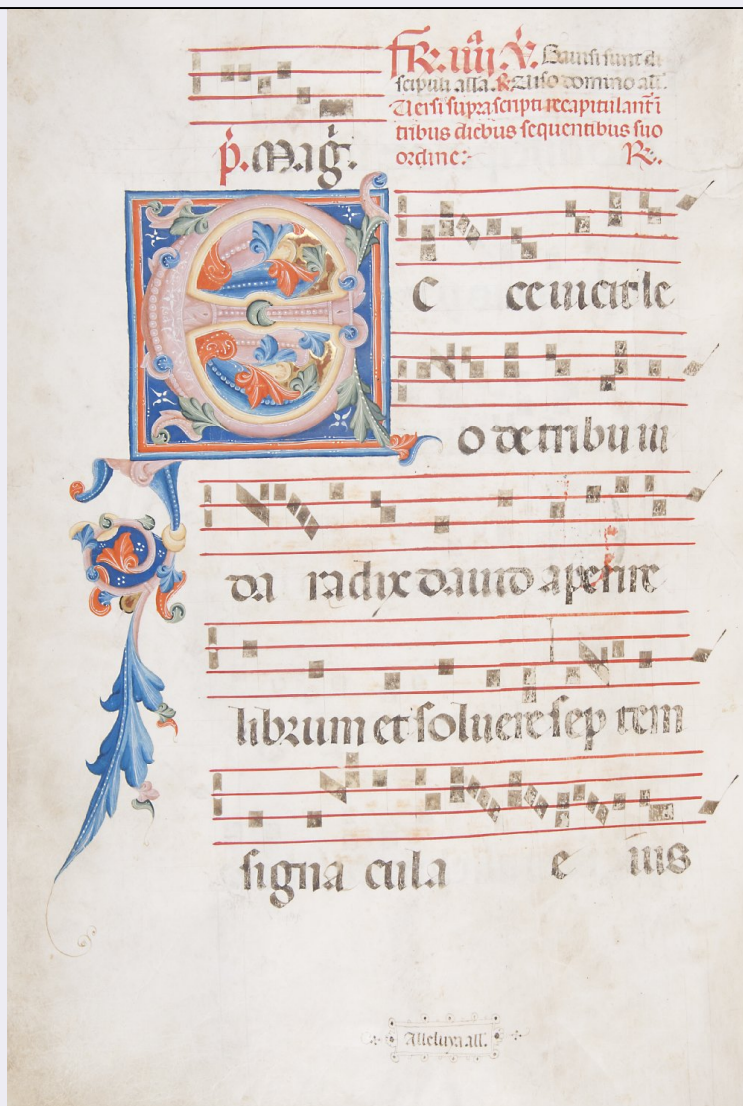 fR. iiij. V. Gavisi sunt di
scipuli alla. R. Viso domino all.
Versi suprascripti recapitulant i
tribus diebus sequentibus suo
ordine:- R.
p. Mag.
E C ce vicit le
o de tribu iu
da radix david aperire
librum et solvere sep tem
signa cula e ius
Alleluya. all.